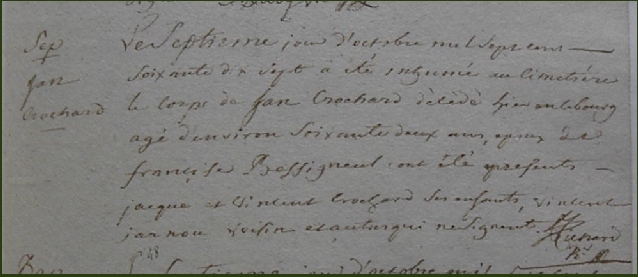 Sep
Jan
Crochard
Le Septieme jour d'octobre mil Sept cent
Soixante dix Sept à été inhumé au Cimetière
le Corps de Jan Crochard décédé hier au bourg
agé d'environ Soixante deux ans, epoux de
françoise Bessigneul ont été presents
jacque et Vincent Crochard Ses enfants, Vincent
jan nou Voisin et autres qui ne Signent
Le Septieme jour d'octobre mil